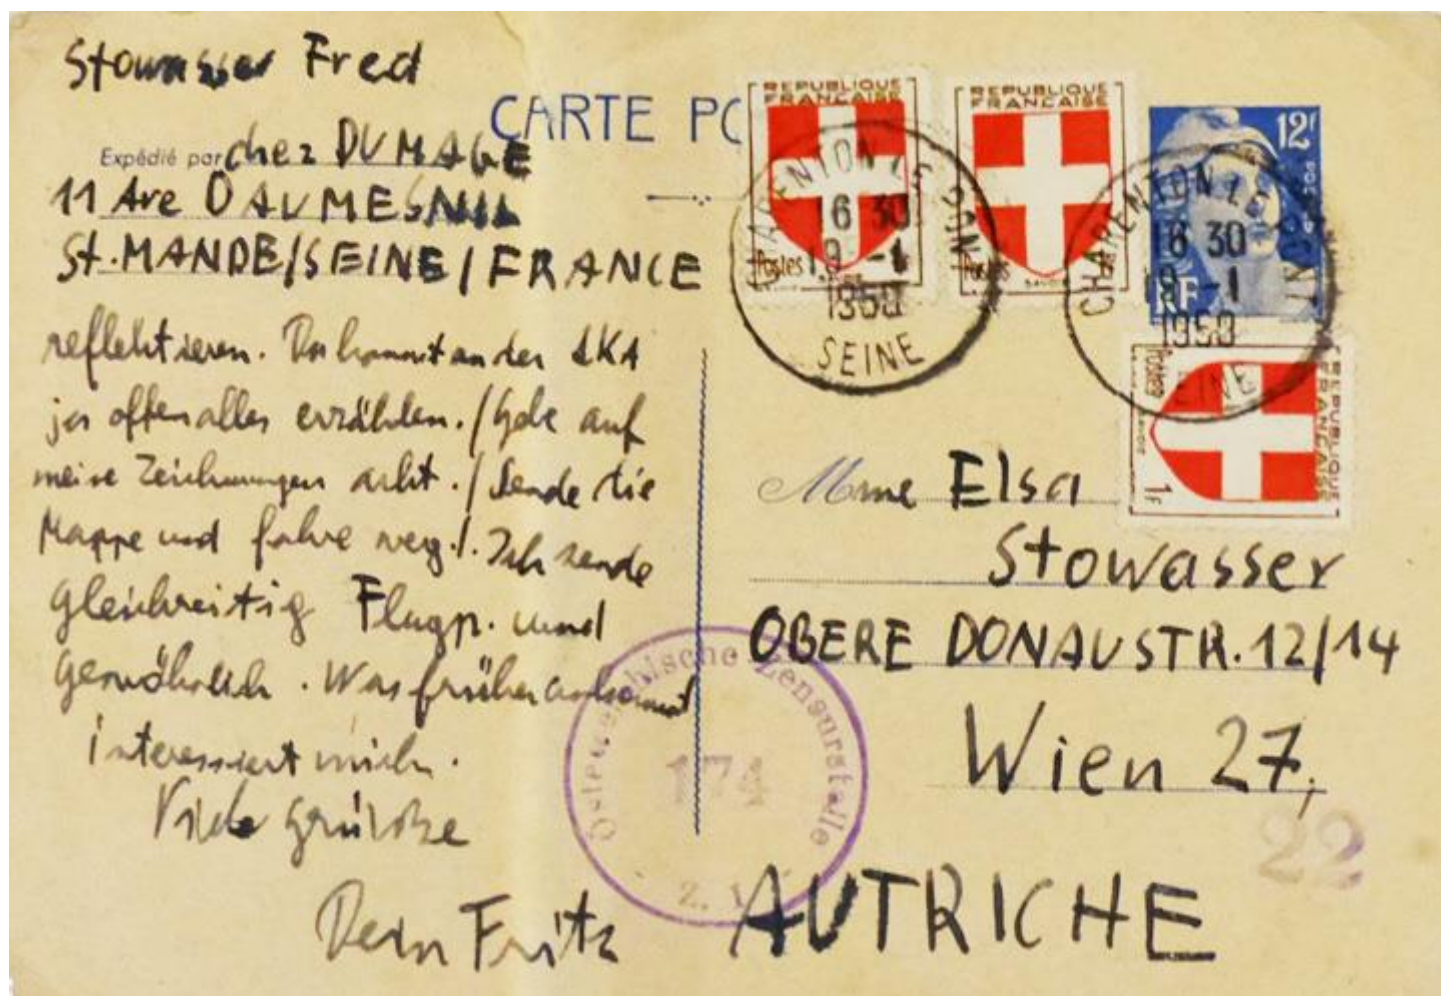 Stowasser Fred
CARTE PO
Expédié par chez DUMAGE
11 Ave DAUMESNIL
St. MANDE/SEINE/FRANCE
reflektieren. Du kannst an der AKA
ja offen alles erzählen. / Gebe auf
meine Zeichnungen acht. / Sende die
Mappe und fahre weg. /. Ich sende
gleichzeitig Flugp. und
gewöhnlich. Was früher ankommt
interessiert mich.
Viele Grüsse
Dein Fritz
REPUBLIQUE
FRANÇAISE
Postes
REPUBLIQUE
FRANÇAISE
Postes
12F
POSTES
RF
CHARENTON LE PONT
16 30
19 -1
1950
SEINE
CHARENTON LE PONT
16 30
19 -1
1950
SEINE
REPUBLIQUE
FRANÇAISE
Postes
SAVOIE
1F
Mme Elsa
Stowasser
OBERE DONAUSTR. 12/14
Wien 27,
AUTRICHE
Österreichische Zensurstelle
174
Z. 1
22